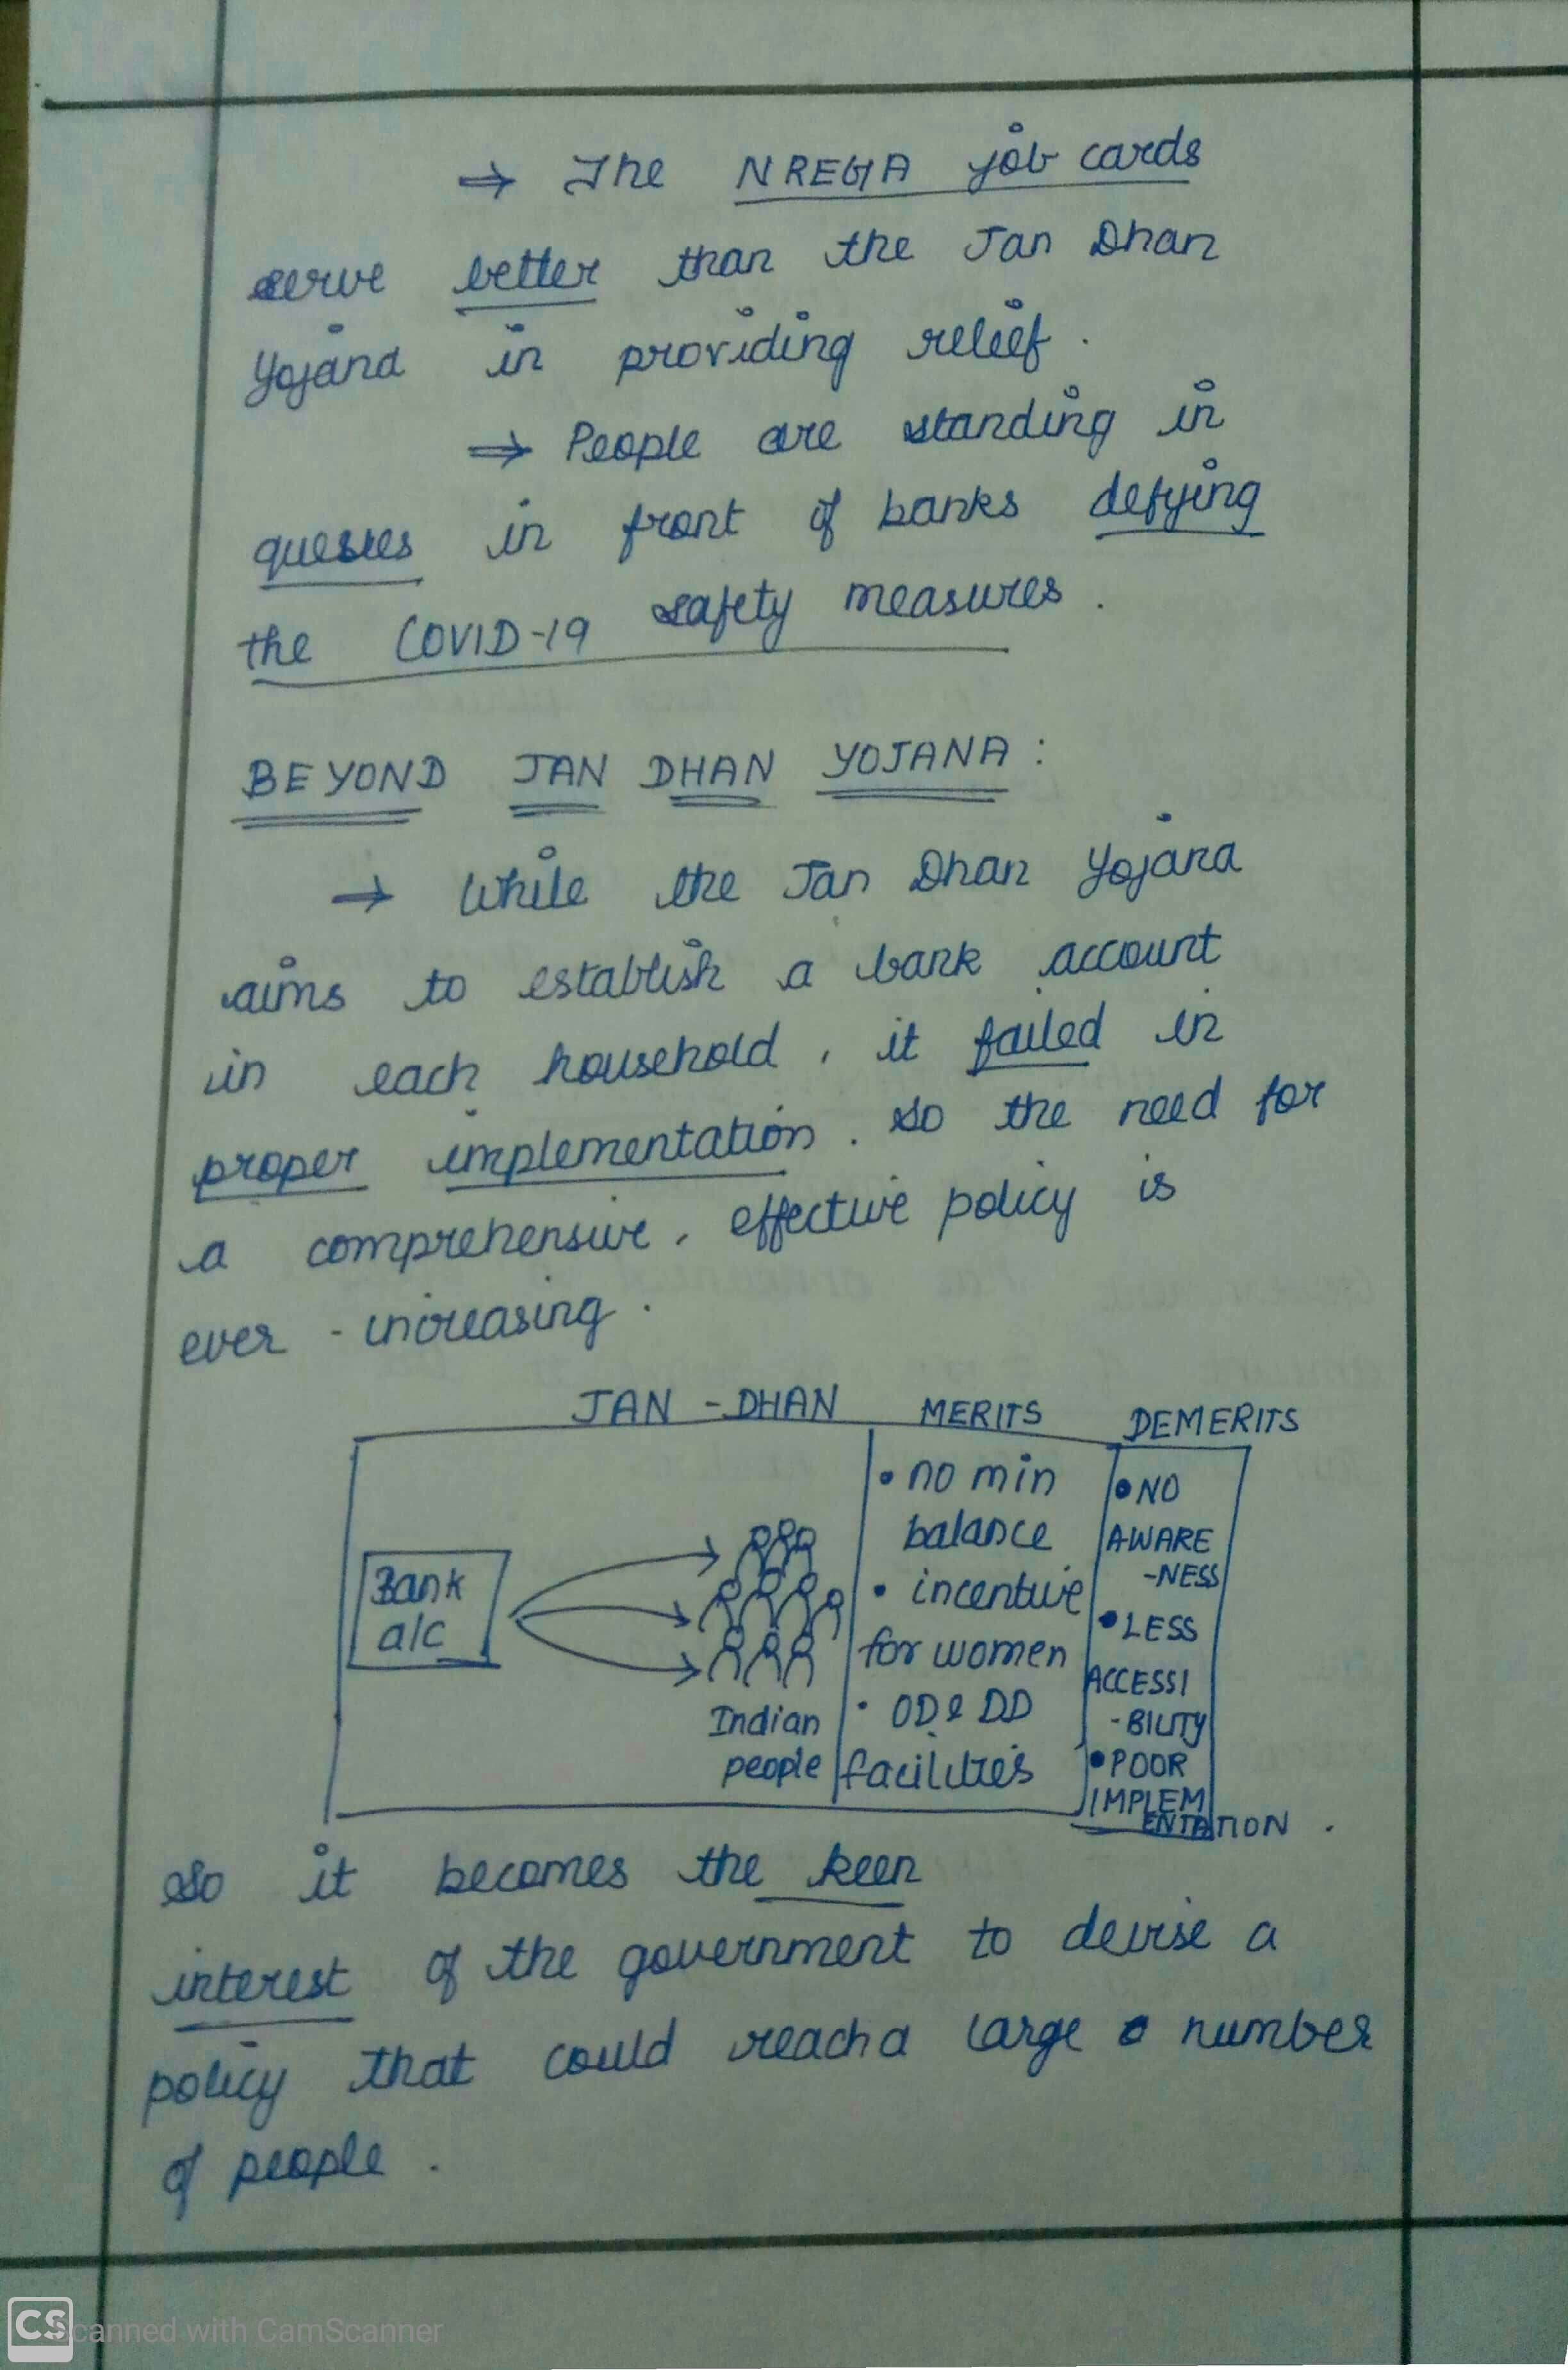 ⇒ The NREGA job cards
serve better than the Jan Dhan
Yojana in providing relief.
⇒ People are standing in
queues in front of banks defying
the COVID-19 safety measures.
BEYOND JAN DHAN YOJANA:
→ While the Jan Dhan Yojana
aims to establish a bank account
in each household, it failed in
proper implementation. So the need for
a comprehensive, effective policy is
ever-increasing.
JAN-DHAN MERITS DEMERITS
Bank
a/c
Indian
people
• no min
balance
• incentive
for women
• OD & DD
facilities
• NO
AWARE
-NESS
• LESS
ACCESSI
-BILITY
• POOR
IMPLEM
ENTATION.
So it becomes the keen
interest of the government to devise a
policy that could reach a large number
of people.
CS Scanned with CamScanner